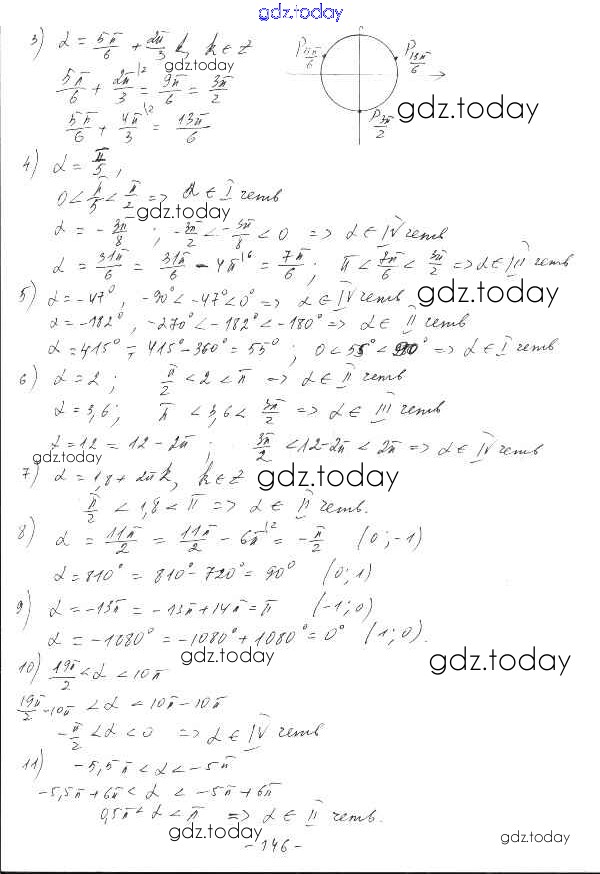 gdz.today
3) α = 5π/6 + 2π/3 k, k ∈ Z
gdz.today
5π/6 + 2π/3 |2 = 9π/6 = 3π/2
5π/6 + 4π/3 |2 = 13π/6
P 5π/6
P 13π/6
P 3π/2
gdz.today
4) α = π/5,
0 < π/5 < π/2 => α ∈ I четв
gdz.today
α = - 3π/8 ; -π/2 < -3π/8 < 0 => α ∈ IV четв
α = 31π/6 = 31π/6 - 4π |6 = 7π/6 ; π < 7π/6 < 3π/2 => α ∈ III четв
5) α = -47°, -90° < -47° < 0° => α ∈ IV четв
gdz.today
α = -182°, -270° < -182° < -180° => α ∈ II четв
α = 415° = 415° - 360° = 55° ; 0 < 55° < 90° => α ∈ I четв
6) α = 2 ; π/2 < 2 < π => α ∈ II четв
α = 3,6 ; π < 3,6 < 3π/2 => α ∈ III четв
α = 12 = 12 - 2π ; 3π/2 < 12-2π < 2π => α ∈ IV четв
gdz.today
7) α = 1,8 + 2πk, k ∈ Z
gdz.today
π/2 < 1,8 < π => α ∈ II четв.
8) α = 11π/2 = 11π/2 - 6π |2 = - π/2 (0; -1)
α = 810° = 810° - 720° = 90° (0; 1)
9) α = -13π = -13π + 14π = π (-1; 0)
α = -1080° = -1080° + 1080° = 0° (1; 0).
gdz.today
gdz.today
10) 19π/2 < α < 10π
19π/2 - 10π < α < 10π - 10π
-π/2 < α < 0 => α ∈ IV четв
11) -5,5π < α < -5π
-5,5π + 6π < α < -5π + 6π
0,5π < α < π => α ∈ II четв.
gdz.today
- 146 -
gdz.today